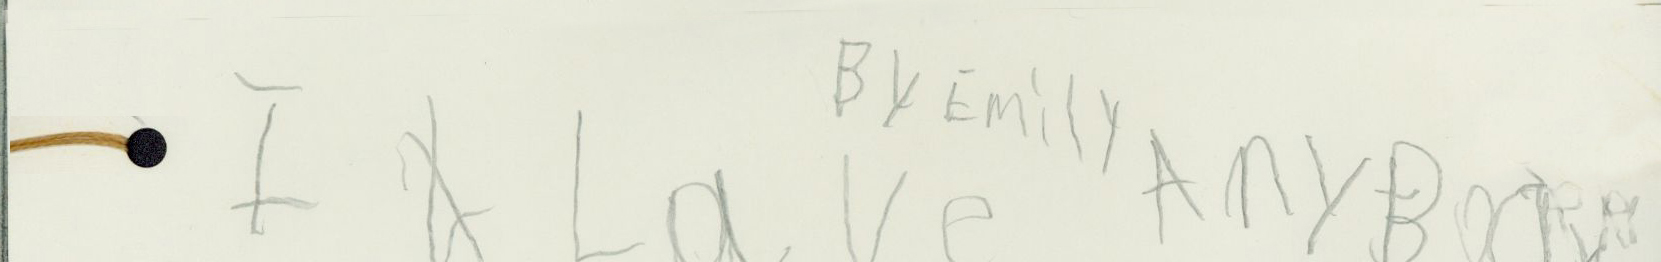 By Emily
I Lave AnyBody